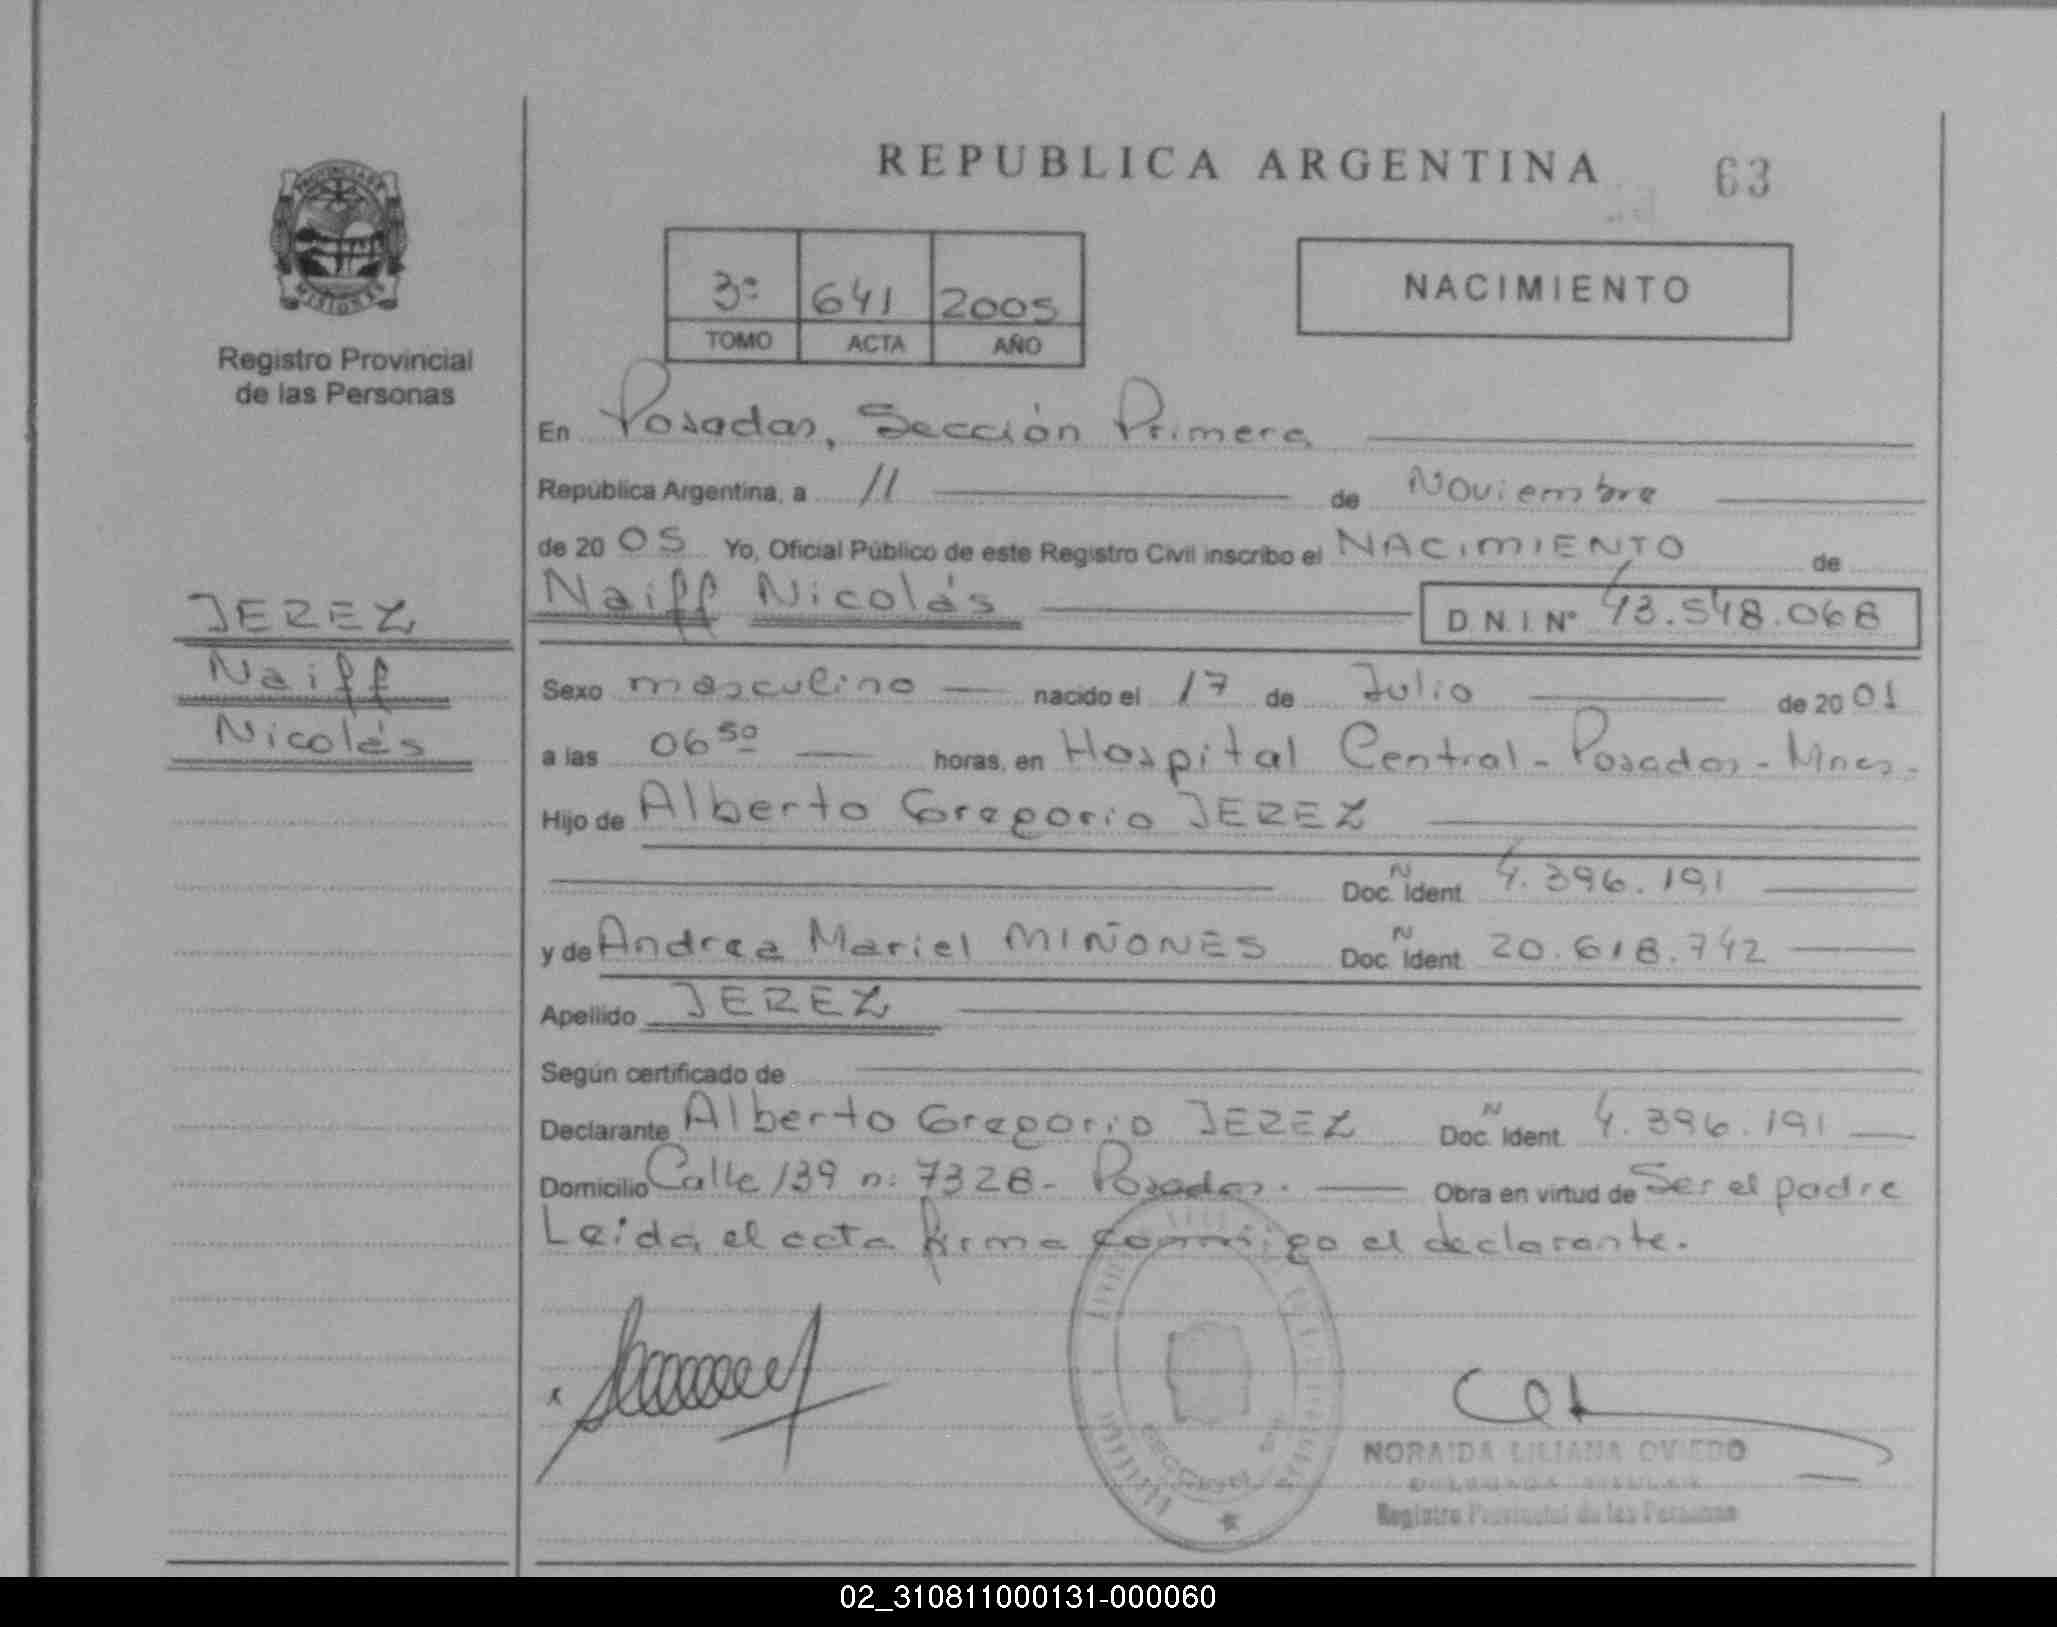 REPUBLICA ARGENTINA 63
PROVINCIA DE
MISIONES
Registro Provincial
de las Personas
3º 641 2005
TOMO ACTA AÑO
NACIMIENTO
En Posadas, Sección Primera
República Argentina, a 11 de Noviembre
de 20 05 Yo, Oficial Público de este Registro Civil inscribo el NACIMIENTO de
JEREZ
Naiff
Nicolás
Naiff Nicolás D.N.I. Nº 43.548.068
Sexo masculino nacido el 17 de Julio de 20 01
a las 06 50 horas, en Hospital Central - Posadas - Mnes.
Hijo de Alberto Gregorio JEREZ
Doc. Ident. N 4.396.191
y de Andrea Mariel MIÑONES Doc. Ident. N 20.618.742
Apellido JEREZ
Según certificado de
Declarante Alberto Gregorio JEREZ Doc. Ident. N 4.396.191
Domicilio Calle 139 n: 7328 - Posadas. Obra en virtud de Ser el padre
Leida el acta firma conmigo el declarante.
x
NORAIDA LILIANA OVIEDO
Registro Provincial de las Personas
02_310811000131-000060